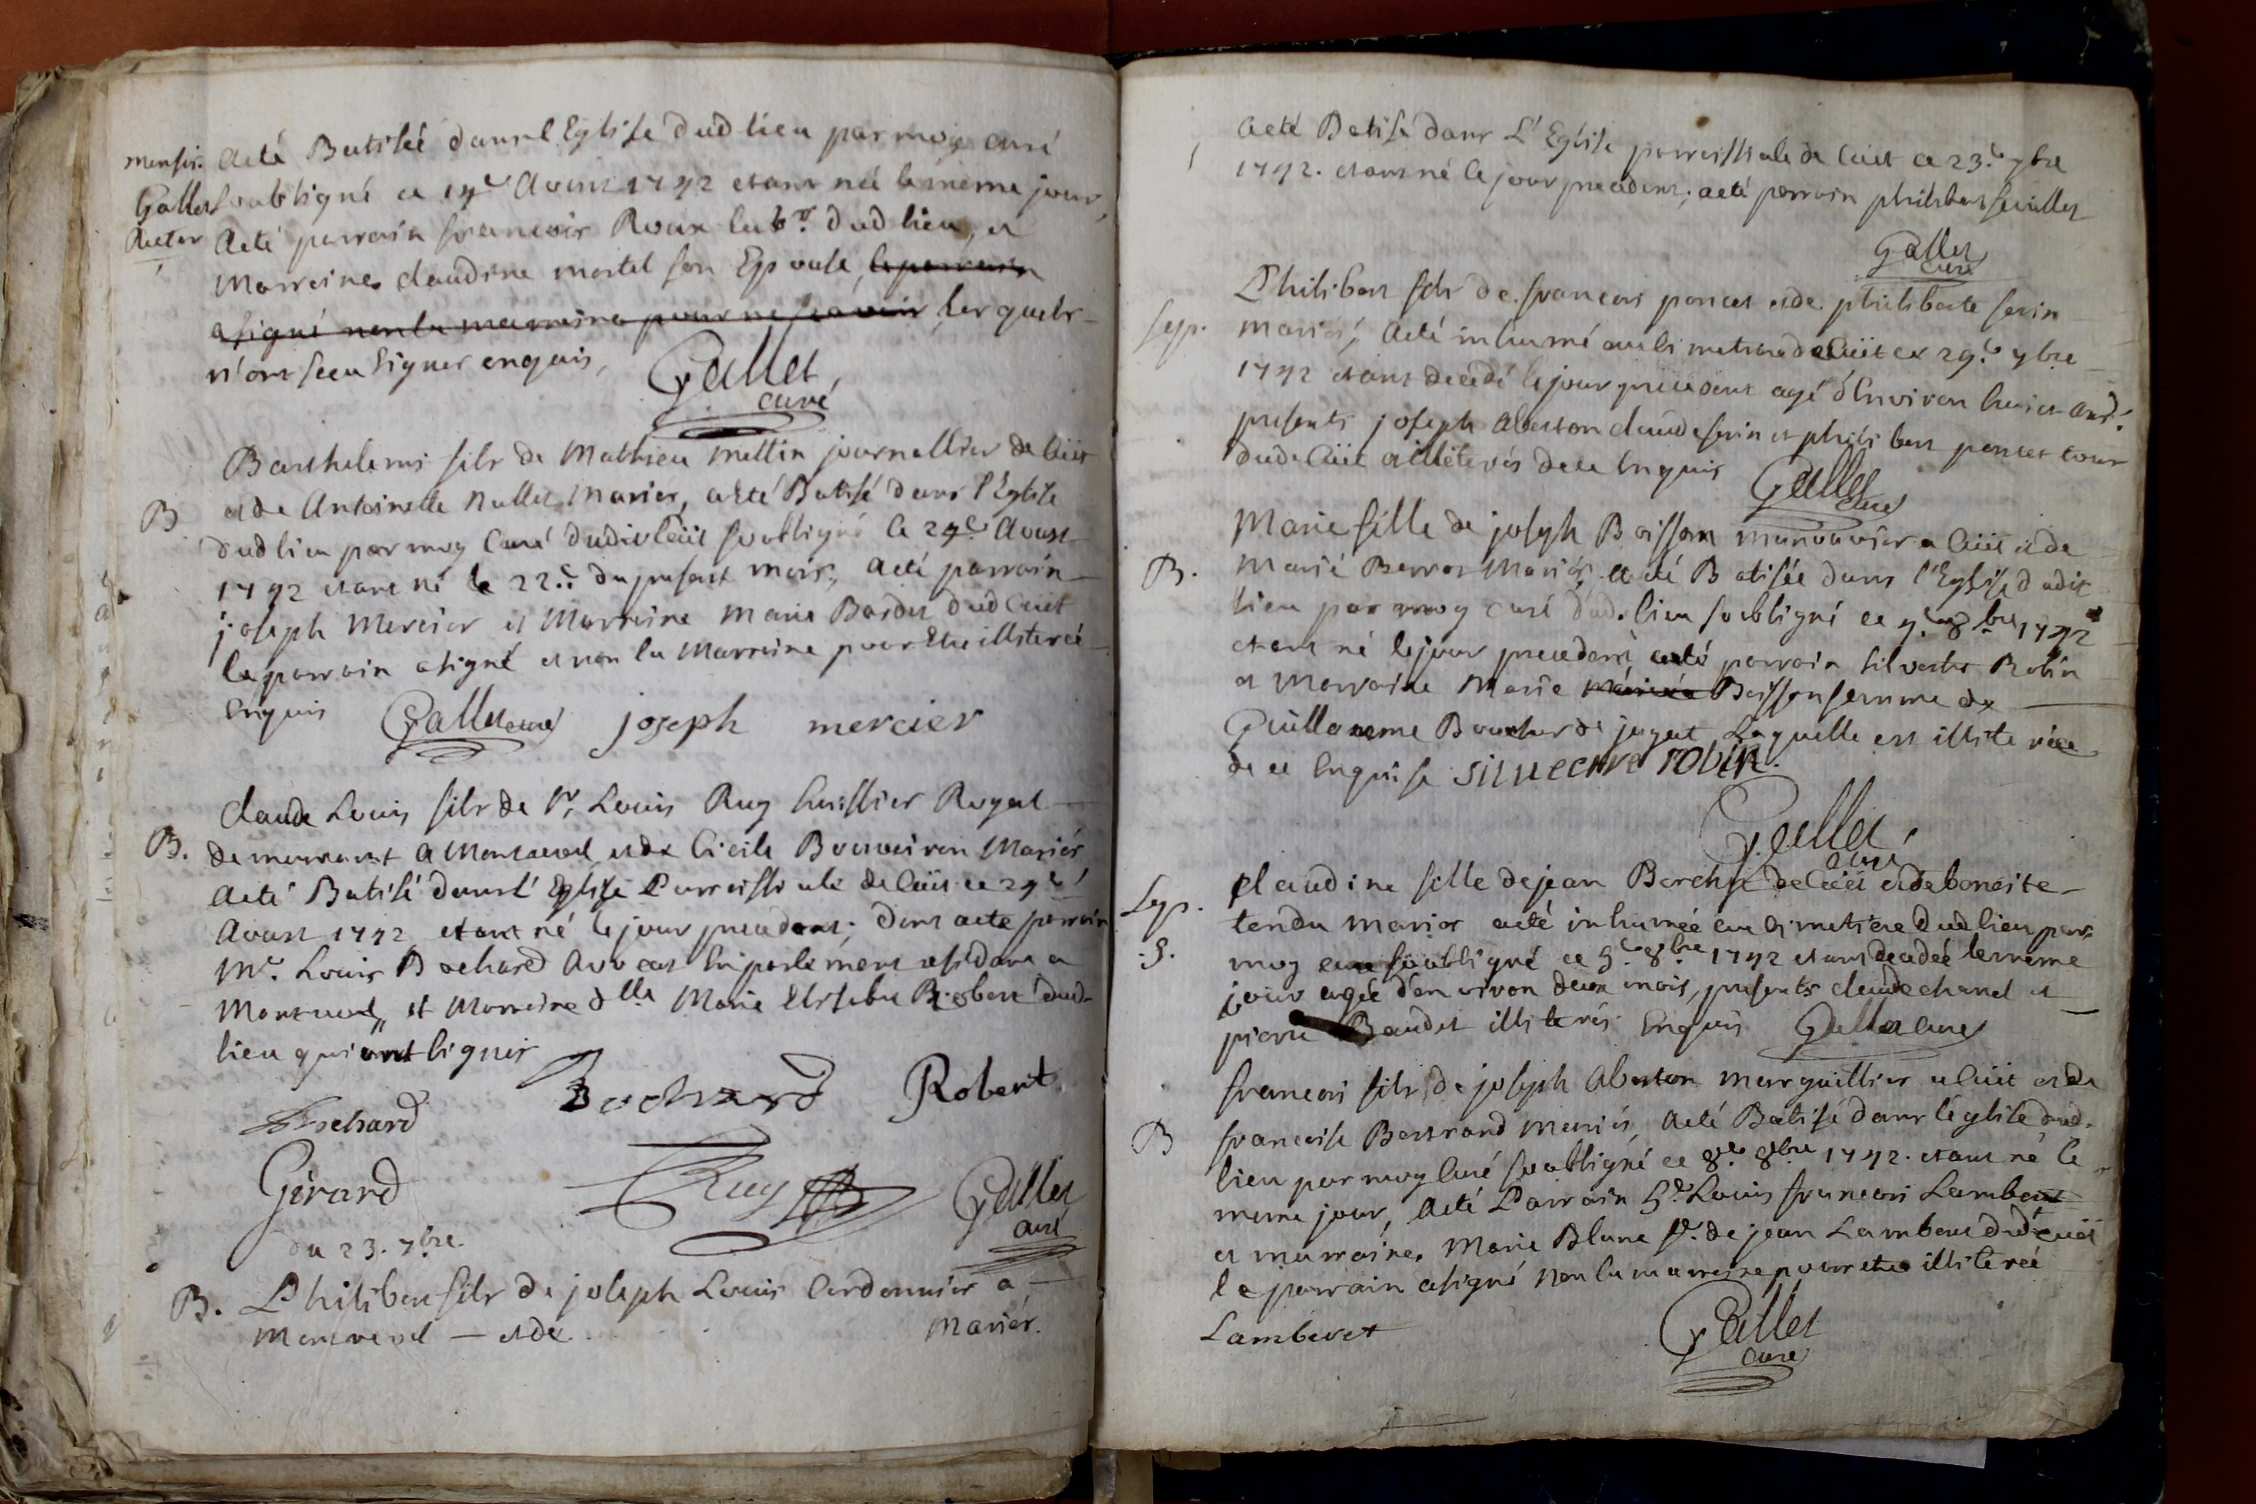 mensis. acté Batisée dans l Eglise dud lieu par moy curé
Gallet soubsigné ce 14e Avoust 1742 etant née le meme jour,
aeté parrain francois Roux lab.r dud lieu, et
Marraine claudine mortel son Epouse, le parrain
a signé non la marraine pour ne scavoir lesquels
n'ont sceu signer enquis,
Gallet,
curé
Barthelemi fils de Mathieu mettin journallier de Cuet
B etde Antoinette Nallet Mariés, a Eté Batisé dans l'Eglise
dud lieu par moy Curé dudit Cuet soubsigné ce 24e Avoust
1742 etant né le 22e du présent mois, aeté parrain
joseph Mercier et Marraine Marie Bardet dud Cuet
le parrain asigné et non la Marraine pour Etre illiterée
Enquis Gallet curé joseph mercier
Claude Louis fils de Sr Louis Ruy huissier Royal
B. demeurant a Montrevel et de Cicile Bouveiron Mariés
aeté Batisé dans l'Eglise Parroissiale de Cuet ce 29e
Avoust 1742 etant né le jour precedent; dont aeté parrain
Mr. Louis Bochard Avocat En parlement residant a
Montrevel, et Marraine dlle Marie Elisabet Robert dud.
lieu qui ont signés
Bochard Bochard Robert
Girard Ruy Gallet
curé
du 23. 7bre.
B. Philibert fils de joseph Louis Cordonnier a
Montrevel — et de Mariés.
aeté Batisé dans L'Eglise parroissiale de Cuet ce 23.e 7bre
1742. etant né le jour precedent; aeté parrain philibert feuillet
Gallet
curé
Philibert fils de francois poncet etde philiberte serin
Sep. mariés, aeté inhumé au Cimetiere de Cuet ce 29.e 7bre
1742 etant decedé le jour precedent agé d'Environ huict ans.
presents joseph Aberton claude serin et philibert poncet tous
dud. Cuet illiterés de ce Enquis Gallet
curé
Marie fille de joseph Boisson manouvrier a Cuet et de
B. Marie Berros Mariés, aeté Batisée dans l'Eglise dudit
lieu par moy curé dud. lieu soubsigné ce 4.e 8bre 1742
etant né le jour precedent, aeté parrain Silvestre Robin
et Marraine Marie Boisson femme de
Guillaume Bouchard jugat Laquelle est illiterée
de ce Enquise silvectre robin.
Gallet,
curé
Claudine fille de jean Borchy de Cuet et de benoite
Sep. tendu mariés aeté inhumée au Cimetiere dud lieu par
.S. moy curé soubsigné ce 5.e 8bre 1742 etant decedée le meme
jour agée d'environ deux mois, presents claude chanel et
pierre Baudet illiterés Enquis Gallet curé
francois fils de joseph Aberton marguillier a Cuet et de
B francoise Bertrand mariés, aeté Batisé dans l'eglise dud.
lieu par moy Curé soubsigné ce 8.e 8bre 1742. etant né le
meme jour, aeté Parrain Sr Louis francois Lamberet
et marraine Marie Blanc f.e de jean Lamberet dud Cuet
le parrain asigné non la marraine pour etre illiterée
Lamberet Gallet
curé